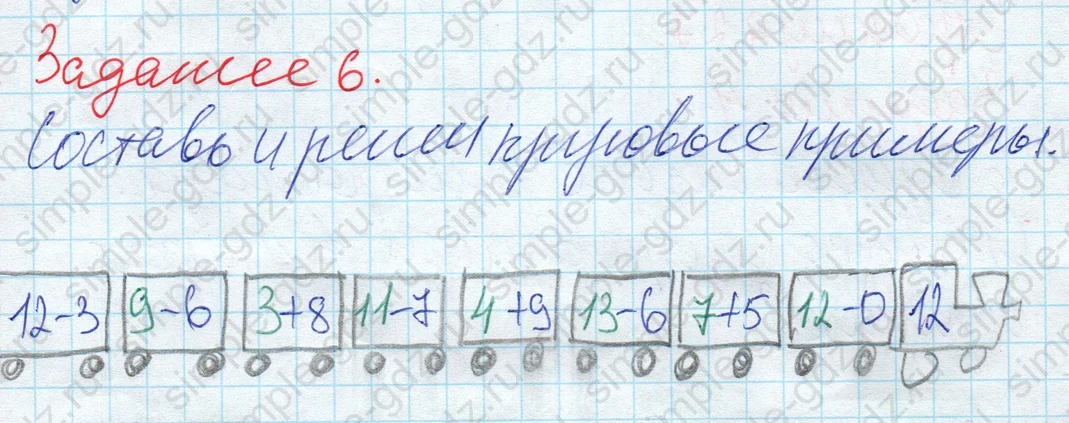 Задание 6.
Составь и реши круговые примеры.
12-3 9-6 3+8 11-7 4+9 13-6 7+5 12-0 12
simple-gdz.ru